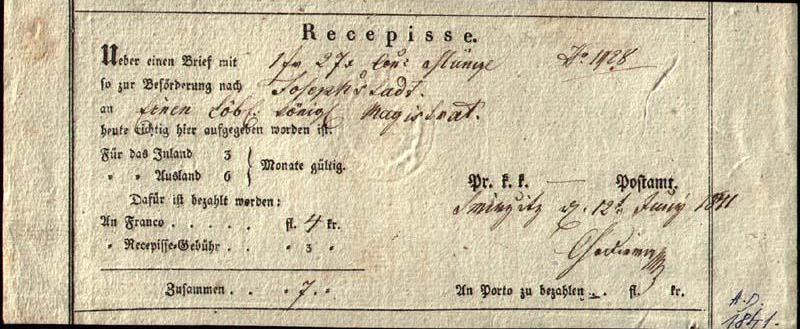 Recepisse.
Ueber einen Brief mit 1 fr 27 x Con: Münze No 1928
so zur Beförderung nach Josephstadt.
an Einen Löbl. König Magistrat.
heute richtig hier aufgegeben worden ist.
Für das Inland 3
" " Ausland 6 } Monate gültig.
Dafür ist bezahlt worden: Pr. k. k. — Postamt.
An Franco . . . . . fl. 4 kr. 12t Juny 1841
" Recepisse-Gebühr . . " 3 "
Zusammen . . " 7 " " An Porto zu bezahlen . . fl. kr.
A.D.
1841.